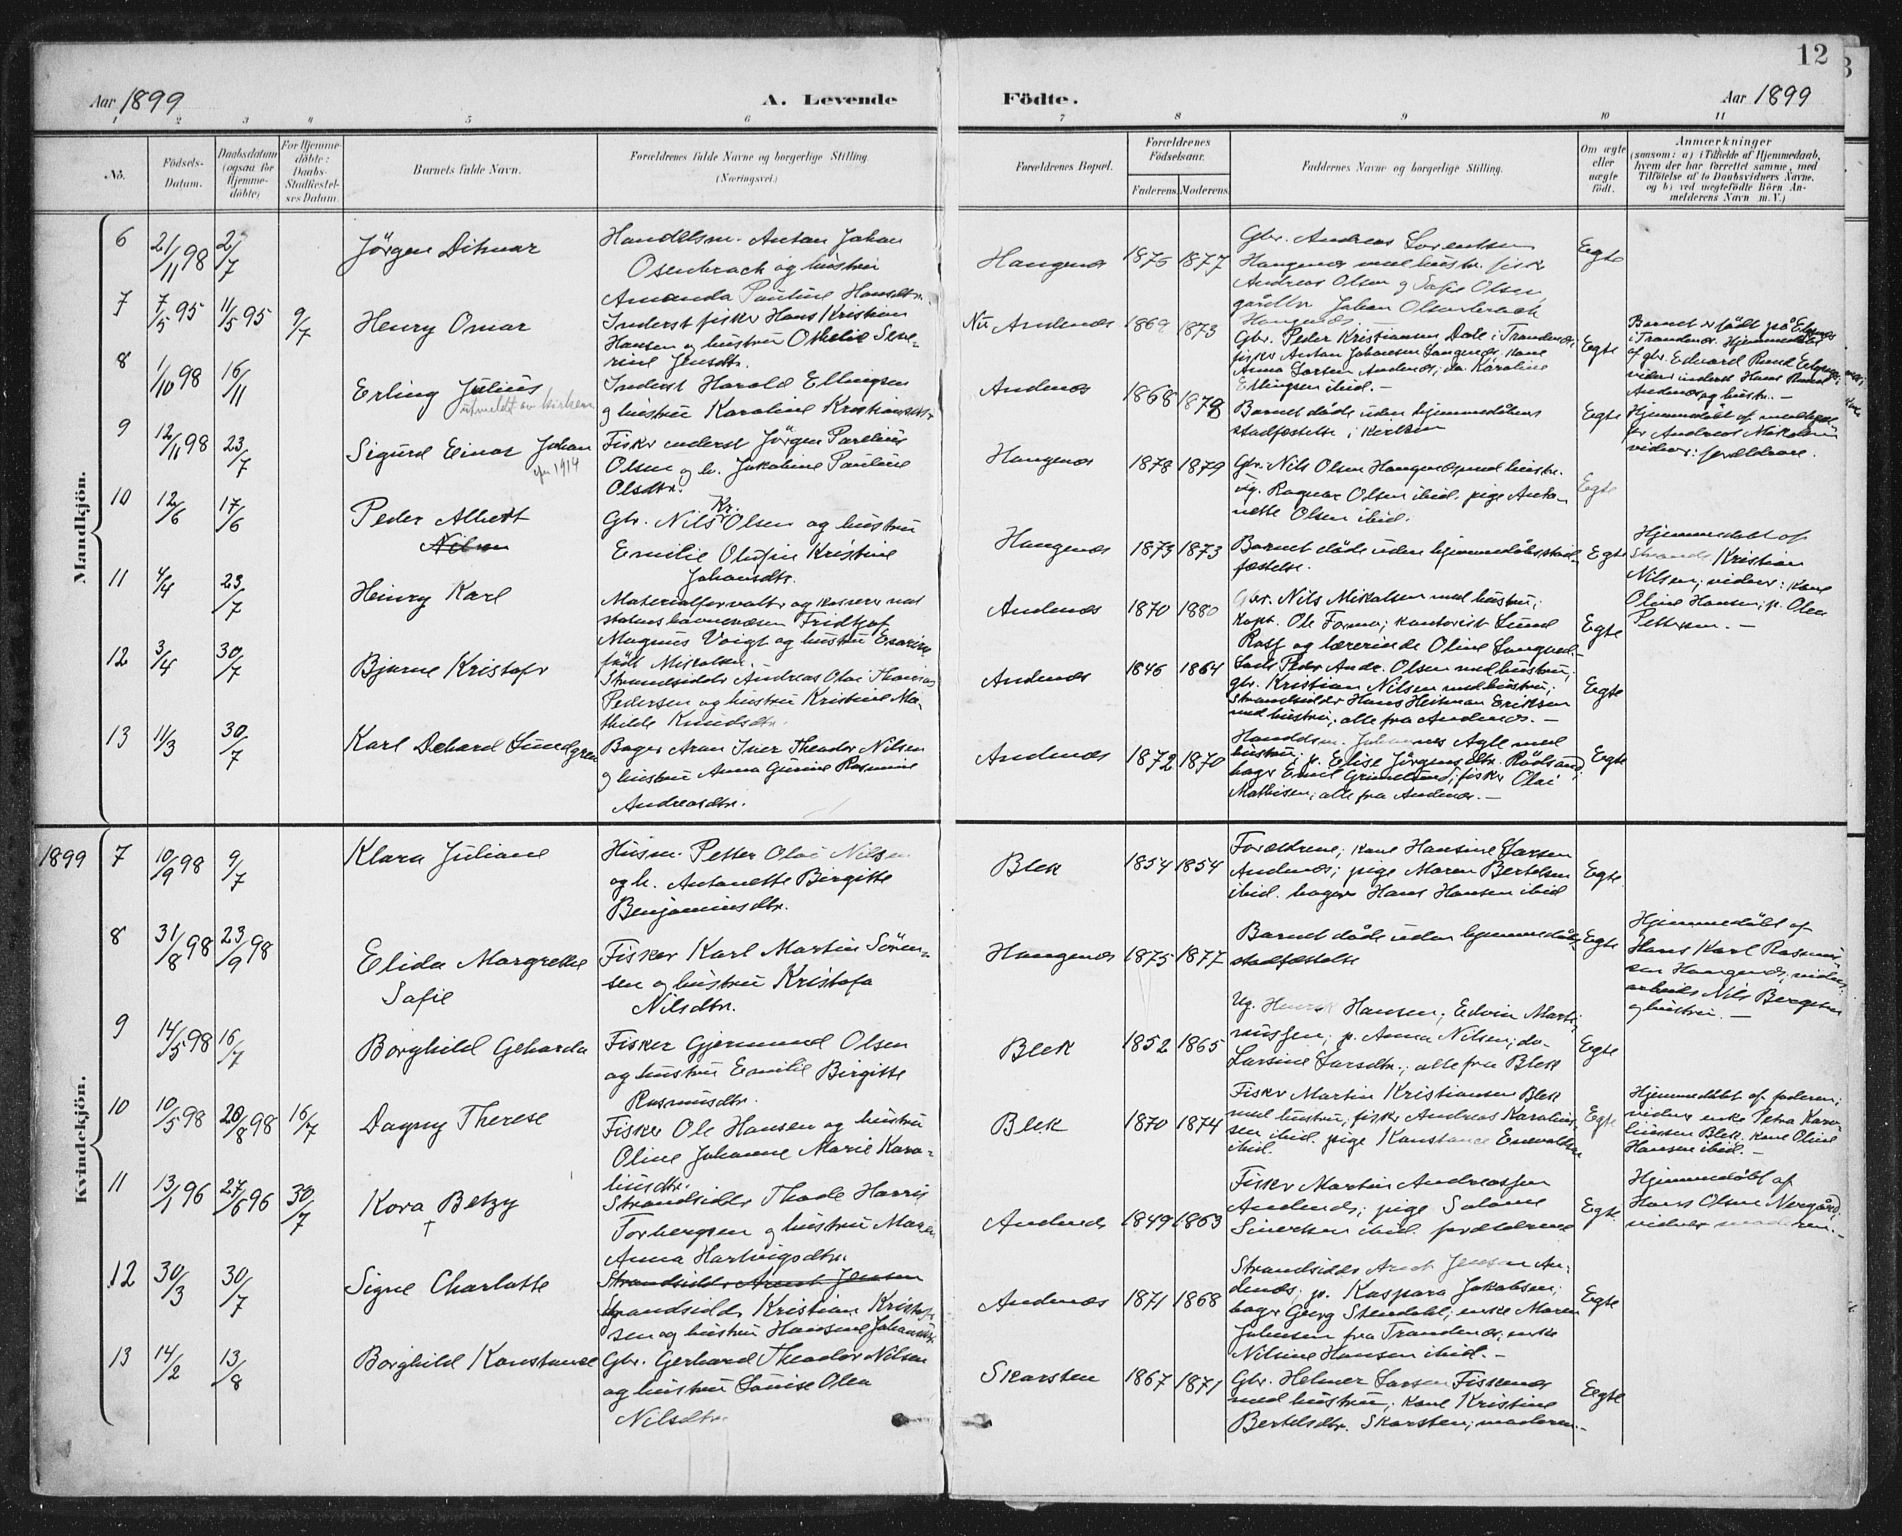 12
Aar 1899 A. Levende Födte. Aar 1899
1 2 3 4 5 6 7 8 9 10 11
No.
Födsels-Datum.
Daabsdatum (ogsaa for Hjemme-döbte)
For Hjemme-döbte: Daabs-Stadfæstel-ses Datum.
Barnets fulde Navn.
Forældrenes fulde Navne og borgerlige Stilling. (Næringsvei.)
Forældrenes Bopæl.
Forældrenes Födselsaar.
Faderens. Moderens.
Faddernes Navne og borgerlige Stilling.
Om ægte eller uægte födt.
Anmærkninger
(saasom: a) i Tilfælde af Hjemmedaab,
hvem der har forrettet samme, med
Tilföielse af to Daabsvidners Navne.
og b) ved uægtefödte Börn An-
melderens Navn m. V.)
Mandkjön.
6 21/11 98 2/7 Jörgen Ditmar
Handelsm. Anton Johan
Osenbrock og hustru
Amanda Pauline Hansdtr.
Haugnes 1875 1877
Gbr. Andreas Lorentsen
Haugnes med hustr. fisk
Andreas Olsen og Sofie Olsen
Johan Osenbrock
Haugnes
Egte
7 7/5 95 11/5 95 9/7 Henry Omar
Inderst fisker Hans Kristian
Hansen og hustru Othelie Seve-
rine Jensdtr.
Nu Andenæs 1869 1873
Gbr. Peder Kristiansen Dale i Trandenæs,
fisker Anton Johansen Haugnes, kone
Anna Larsen Andenæs; do Karoline
Ellingsen ibid. —
Egte
Barnet er födt på Elgsnæs
i Trandenæs. Hjemmedöbt
af gbr. Edvard Rund Elgsnæs;
vidner inderst Hans
Andenæs og hustr. —
8 1/10 98 16/11 Erling Julius
utmeldt av kirken
Inderst Harald Ellingsen
og hustru Karoline Kristiansdtr.
Andenæs 1868 1878
Barnet döde uden hjemmedåbens
stadfæstelse i kirken
Egte
Hjemmedöbt af
Andreas Mikalsen
vidner: forældrene.
9 12/11 98 23/7 Sigurd Einar Johan
1914
Fisker inderst Jörgen Parelius
Olsen og h. Jakobine Pauline
Olsdtr.
Haugnes 1878 1879
Gbr. Nils Olsen Haugnes med hustr.
ug. Ragnar Olsen ibid. pige Anto-
nette Olsen ibid.
Egte
10 12/6 17/6 Peder Albert
Nilsen
Gbr. Nils Kr. Olsen og hustru
Emilie Olufine Kristine
Johansdtr.
Haugnes 1873 1873
Barnet döde uden hjemmedåbsstad-
fæstelse.
Egte
Hjemmedöbt af
Strands. Kristian
Nilsen; vidner: kone
Oline Hansen; p. Olea
Pettersen. —
11 4/4 23/7 Heinry Karl
Materialforvalter og kasserer ved
statens havnevæsen Fridtjof
Magnus Voigt og hustru Esarine
födt Mikalsen.
Andenæs 1870 1880
Gbr. Nils Mikalsen med hustru;
kapt. Ole Forma; kontorist Lund
Rolf og lærerinde Oline Langved. —
Egte
12 3/4 30/7 Bjarne Kristofer
Strandsidder Andreas Olai Thomias
Pedersen og hustru Kristine Ma-
thilde Knudsdtr.
Andenæs 1846 1864
Lods Peder Andr. Olsen med hustru;
gbr. Kristian Nilsen med hustru;
Strandsidder Hans Heitman Eriksen
med hustru, alle fra Andenæs. —
Egte
13 11/3 30/7 Karl Dehard Lundgren
Bager Aron Iver Theodor Nilsen
og hustru Anna Gurine Rasmine
Andreasdtr.
Andenæs 1872 1870
Handelsm. Johannes Agle med
hustru; p. Elise Jörgensdtr. Rödsand,
bager Emil Grönlund; fisker Olai
Mathisen; alle fra Andenæs. —
Egte
Kvindekjön.
1899 7 10/9 98 9/7 Klara Juliane
Husm. Petter Olai Nilsen
og h. Antonette Birgitte
Benjaminsdtr.
Blek 1854 1854
Forældrene; kone Hansine Larsen
Andenæs; pige Maren Bertelsen
ibid. bager Hans Hansen ibid
Egte
8 31/8 98 23/9 98 Elida Margrethe
Sofie
Fisker Karl Martin Sören-
sen og hustru Kristofa
Nilsdtr.
Haugnes 1875 1877
Barnet döde uden hjemmedåbs
stadfæstelse
Egte
Hjemmedöbt af
Hans Karl Rasmus-
sen Haugnes; vidner
arbeids Nils Bergsen
og hustru. —
9 14/5 98 16/7 Borghild Geharda
Fisker Gjermund Olsen
og hustru Emilie Birgitte
Rasmusdtr.
Blek 1852 1865
Ug. Henrik Hansen; Edvin Marti-
nussen; p. Anna Nilsen; do-
Larsine Larsdtr.; alle fra Blek
Egte
10 10/5 98 28/8 98 16/7 Dagny Therese
Fisker Ole Hansen og hustru
Oline Johanne Marie Karo-
liusdtr.
Blek 1870 1874
Fisker Martin Kristiansen Blek
med hustru, fisker Andreas Karolius-
sen ibid. pige Konstance Enevoldsen
ibid.
Egte
Hjemmedöbt af faderen;
vidner enke Petra Karo-
liussen Blek. kone Oline
Hansen ibid. —
11 13/1 96 27/6 96 30/7 Kora Betzy
†
Strandsidder Thode Harris
Torbergsen og hustru Maren
Anna Hartvigsdtr.
Andenæs 1849 1863
Fisker Martin Andreassen
Andenæs; pige Salome
Sivertsen ibid. forældrene
Egte
Hjemmedöbt af
Hans Olsen Norgård;
vidner moderen. —
12 30/3 30/7 Signe Charlotte
Strandsidder Arent Jensen
Strandsidder Kristian Kristof-
sen og hustru Hansine Johansdtr.
Andenæs 1871 1868
Strandsidder Arent Jensen An-
denæs; p. Kaspara Jakobsen;
bager Georg Stendahl; enke Maren
Johnsen fra Trandenæs, enke
Nilsine Hansen ibid. —
Egte
13 14/2 13/8 Borghild Konstance
Gbr. Gerhard Theodor Nilsen
og hustru Lovise Olea
Nilsdtr.
Skarsten 1867 1871
Gbr. Helmer Larsen Fiskenæs
med hustru; kone Kristine
Bertelsdtr. Skarsten; moderen. —
Egte